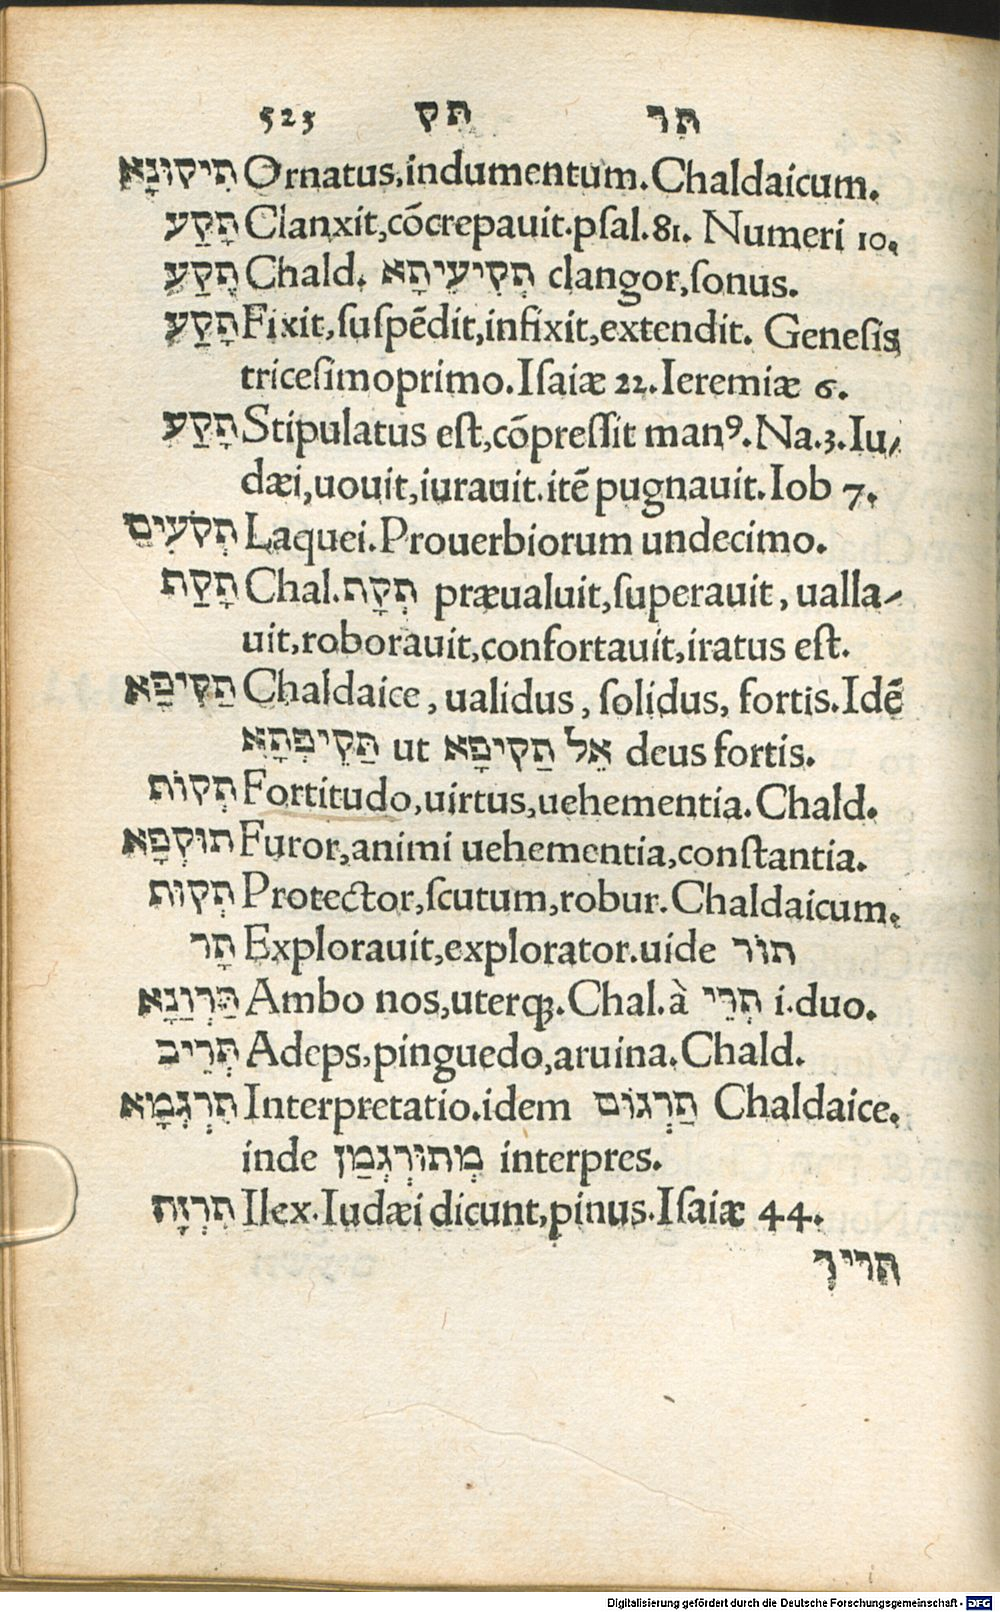 523 תק תר
תִיקוּנָא Ornatus,indumentum.Chaldaicum.
תָקַע Clanxit,cõcrepauit.pſal.81. Numeri 10.
תְקַע Chald. תְקִיעִיתָא clangor,ſonus.
תָקַע Fixit,ſuſpẽdit,infixit,extendit. Geneſis
triceſimoprimo.Iſaiæ 22.Ieremiæ 6.
תָקַע Stipulatus eſt,cõpreſſit manꝰ.Na.3.Iu⸗
dæi,uouit,iurauit.itẽ pugnauit.Iob 7.
תְקֹעִים Laquei.Prouerbiorum undecimo.
תָקַת Chal.תְקָת præualuit,ſuperauit, ualla⸗
uit,roborauit,confortauit,iratus eſt.
תַקִיפָא Chaldaice, ualidus, ſolidus, fortis.Idẽ
תַּקֵיפְתָא ut אֵל תַקִיפָא deus fortis.
תְקוֹת Fortitudo,uirtus,uehementia.Chald.
תוּקְפָא Furor,animi uehementia,conſtantia.
תְקוּת Protector,ſcutum,robur.Chaldaicum.
תָר Explorauit,explorator.uide תוֹר
תַּרְוַנָא Ambo nos,uterqꝫ.Chal.à תְרֵי i.duo.
תְּרֵיב Adeps,pinguedo,aruina.Chald.
תֻרְגְמָא Interpretatio.idem תַרְגוֹם Chaldaice.
inde מְתוּרְגְמַן interpres.
תִרְזָה Ilex.Iudæi dicunt,pinus.Iſaiæ 44.
תריך
Digitalisierung gefördert durch die Deutsche Forschungsgemeinschaft - DFG